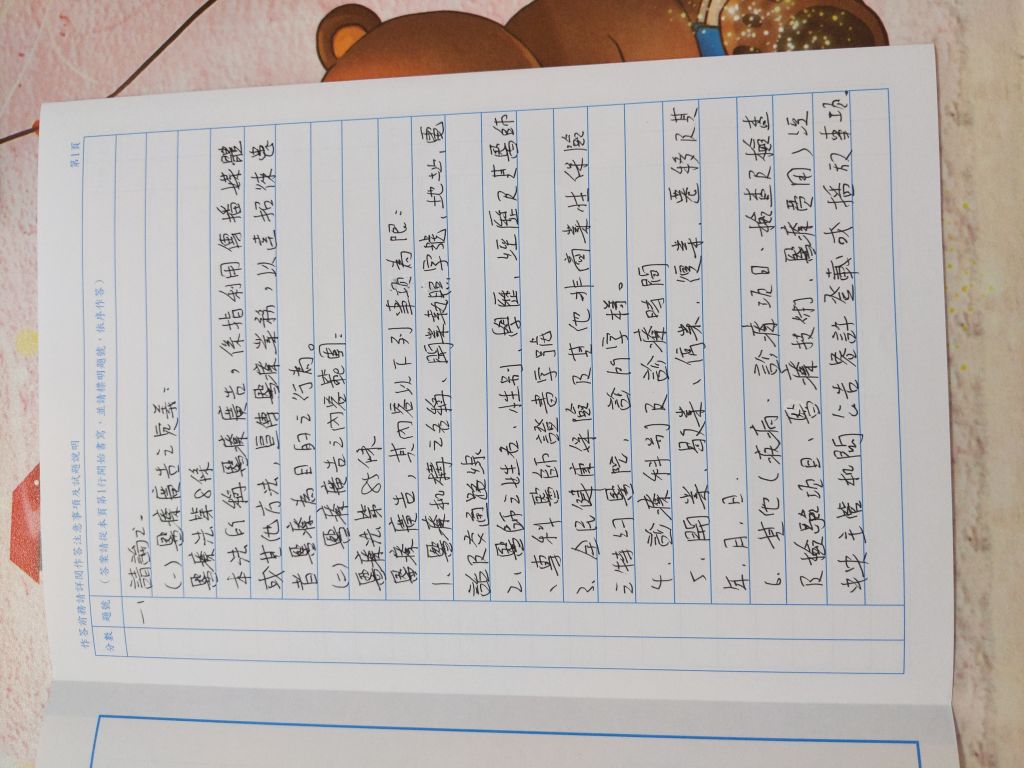 作答前務請詳閱作答注意事項及試題說明
第1頁
(答案請從本頁第1行開始書寫,並請標明題號,依序作答)
分數 題號
一、請論之.
(一) 醫療廣告之定義:
醫療法第8條
本法的稱醫療廣告,係指利用傳播媒體
或其他方法,宣傳醫療業務,以達招徠患
者醫療為目的之行為。
(二) 醫療廣告之內容範圍:
醫療法第85條
醫療廣告,其內容以下列事項為限:
1. 醫療機構之名稱、開業執照字號、地址、電
話及交通路線
2. 醫師之姓名、性別、學歷、經歷及其醫師
、專科醫師證書字號
3、全民健康保險及其他非商業性保險
之特約醫院,診所字樣。
4. 診療科別及診療時間
5. 開業、歇業、停業、復業、遷移及其
年.月.日.
6. 其他(疾病、診療項目、檢查及檢查
及檢驗項目、醫療技術、醫療費用)經
中央主管機關公告容許登載或播放事項.